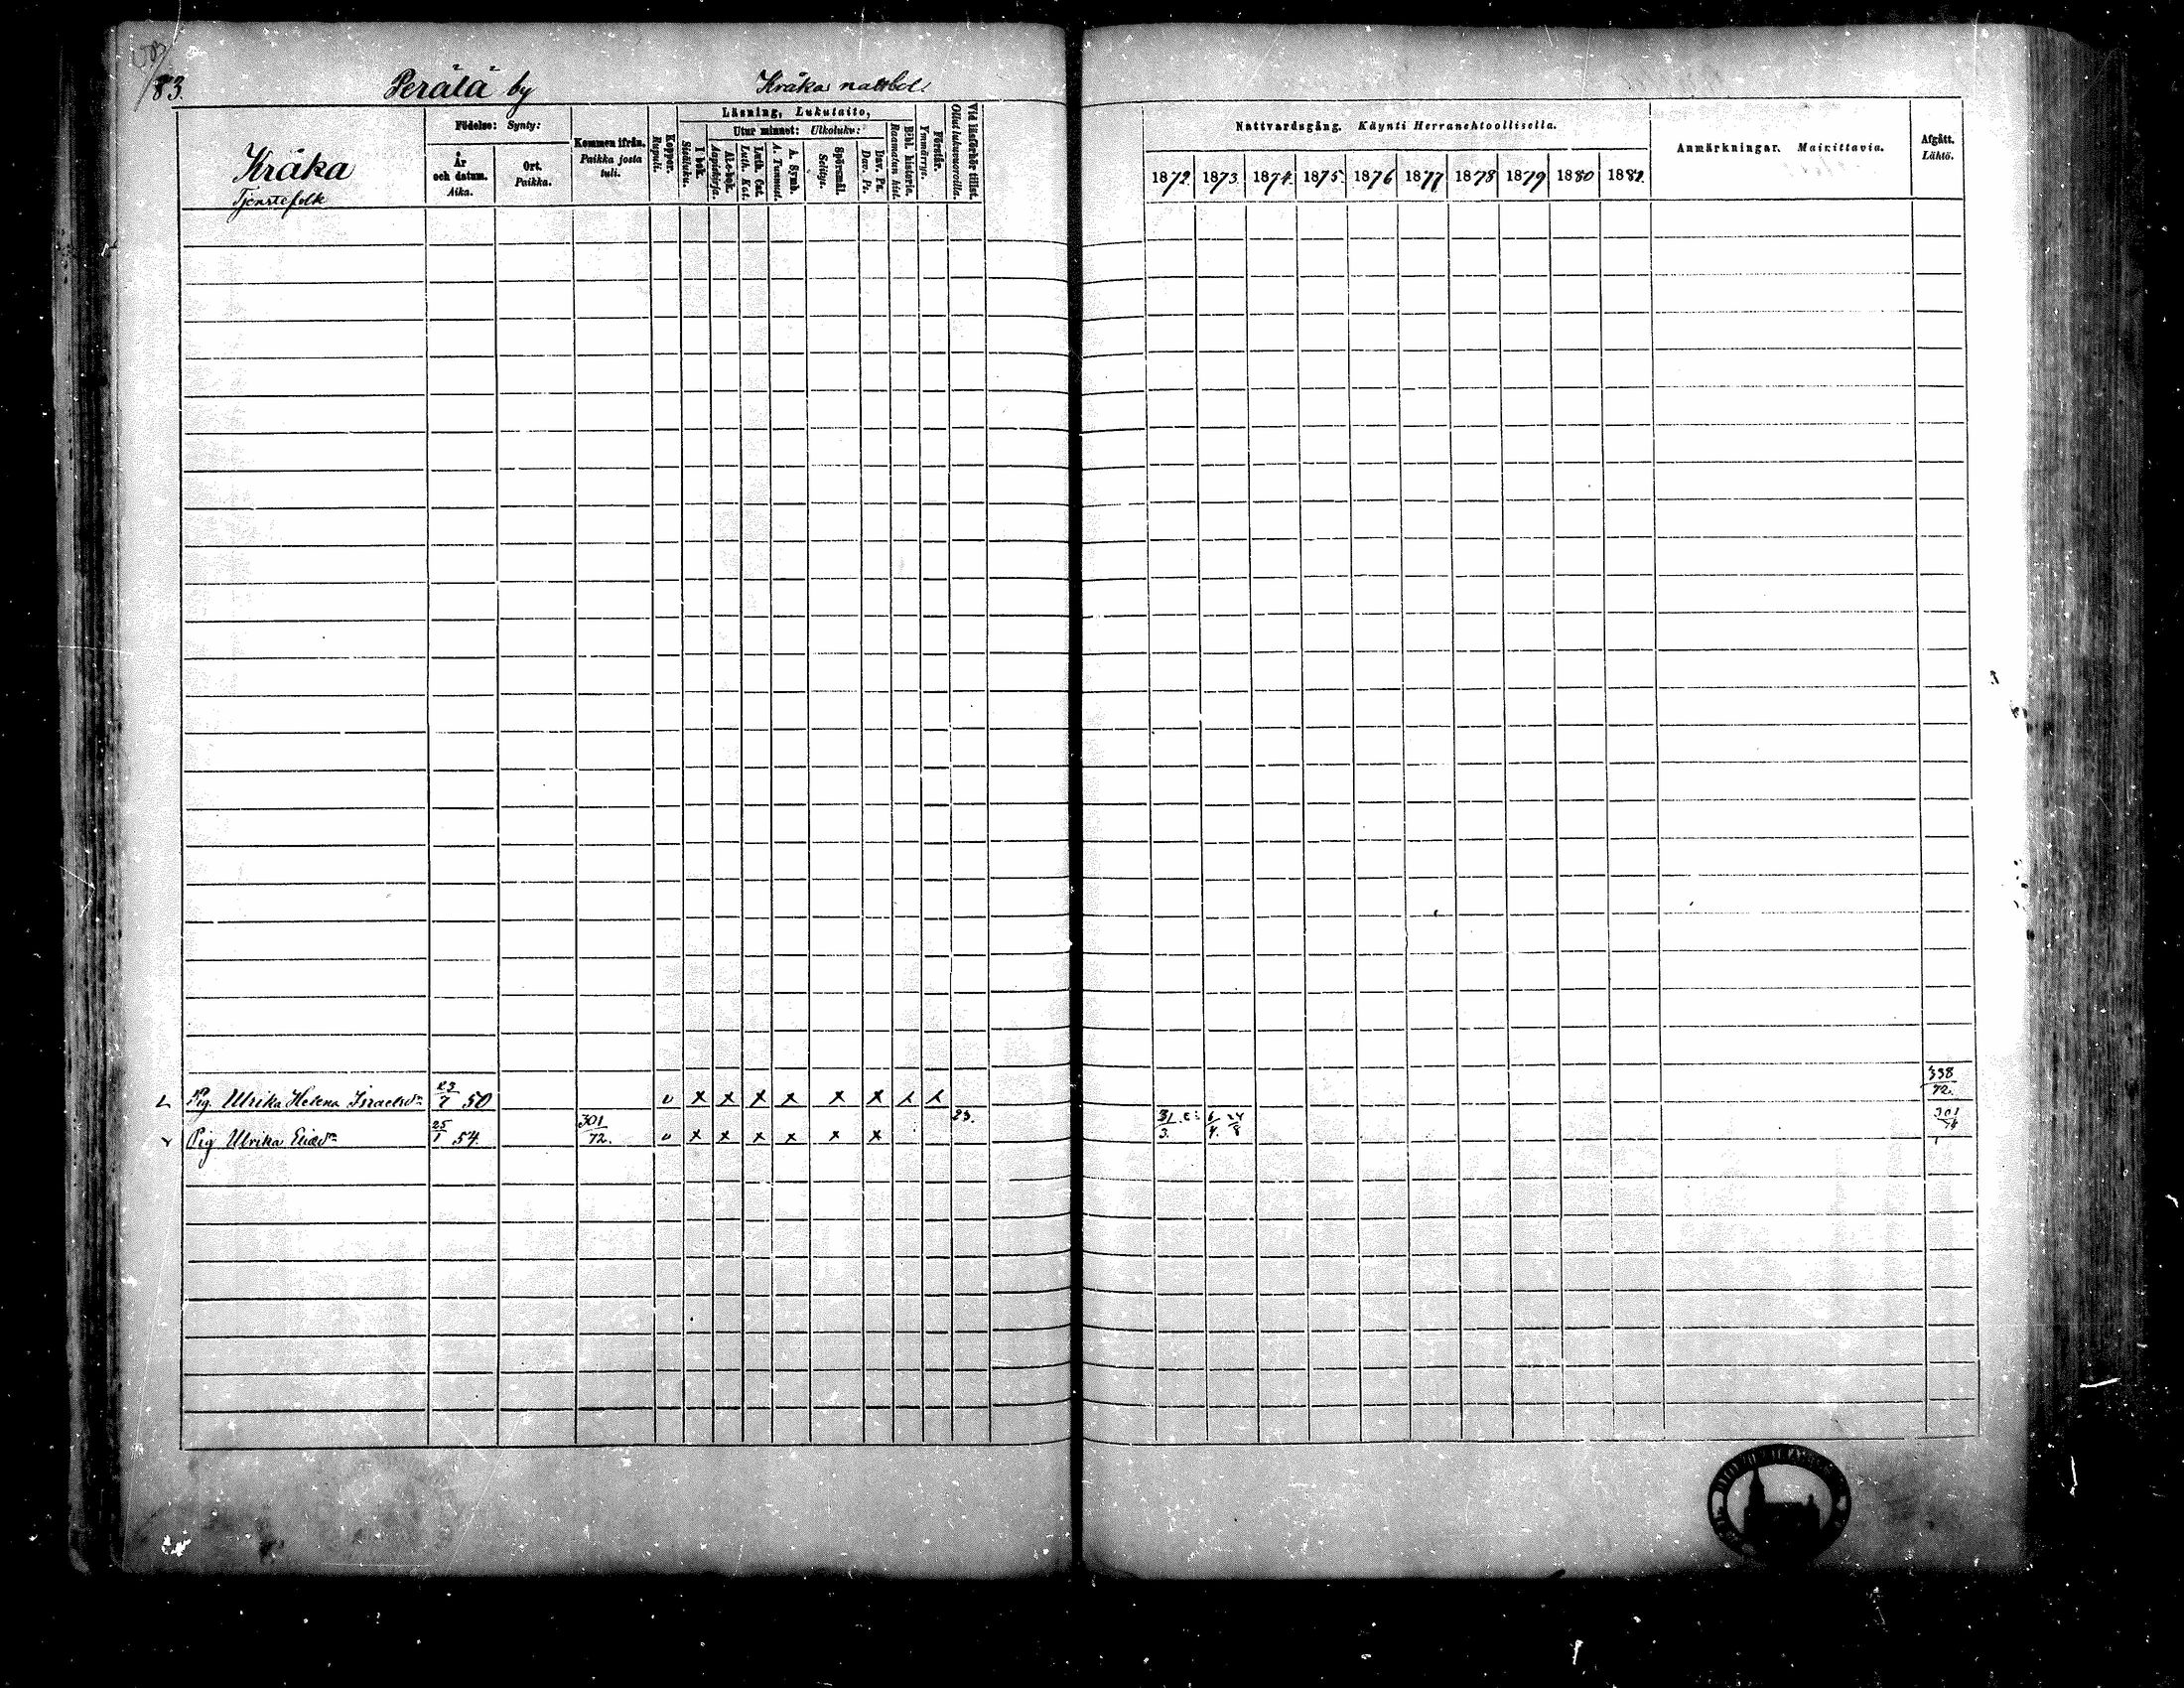 83.
Perälä by
Kråka nattbol
Kråka
Tjenstefolk
Födelse: Synty:
År och datum. Aika.
Ort. Paikka.
Kommen ifrån. Paikka josta tuli.
Koppor. Rupuli.
Läsning, Lukutaito,
I bok. Sisäluku.
Utur minnet: Ulkoluku:
Ab-bok. Aapiskirja.
Luth. Cat. Luth. Kat.
A. Symb. A. Tunnust.
Spörsmål. Selitys.
Dav. Ps. Dav. Ps.
Bibl. historie. Raamatun hist.
Förstår. Ymmärrys.
Vid läsförhör tillst. Ollut lukuvuoroilla.
Nattvardsgång. Käynti Herranehtoollisella.
1872. 1873. 1874. 1875. 1876 1877 1878 1879 1880 1881.
Anmärkningar. Mainittavia.
Afgått. Lähtö.
Pig. Ulrika Helena Israelsdr 23/7 50 v x x x x x x 338/72.
Pig Ulrika Eliasdr 25/1 54. 301/72. v x x x x x x 23. 31/3. 6/4. 24/8